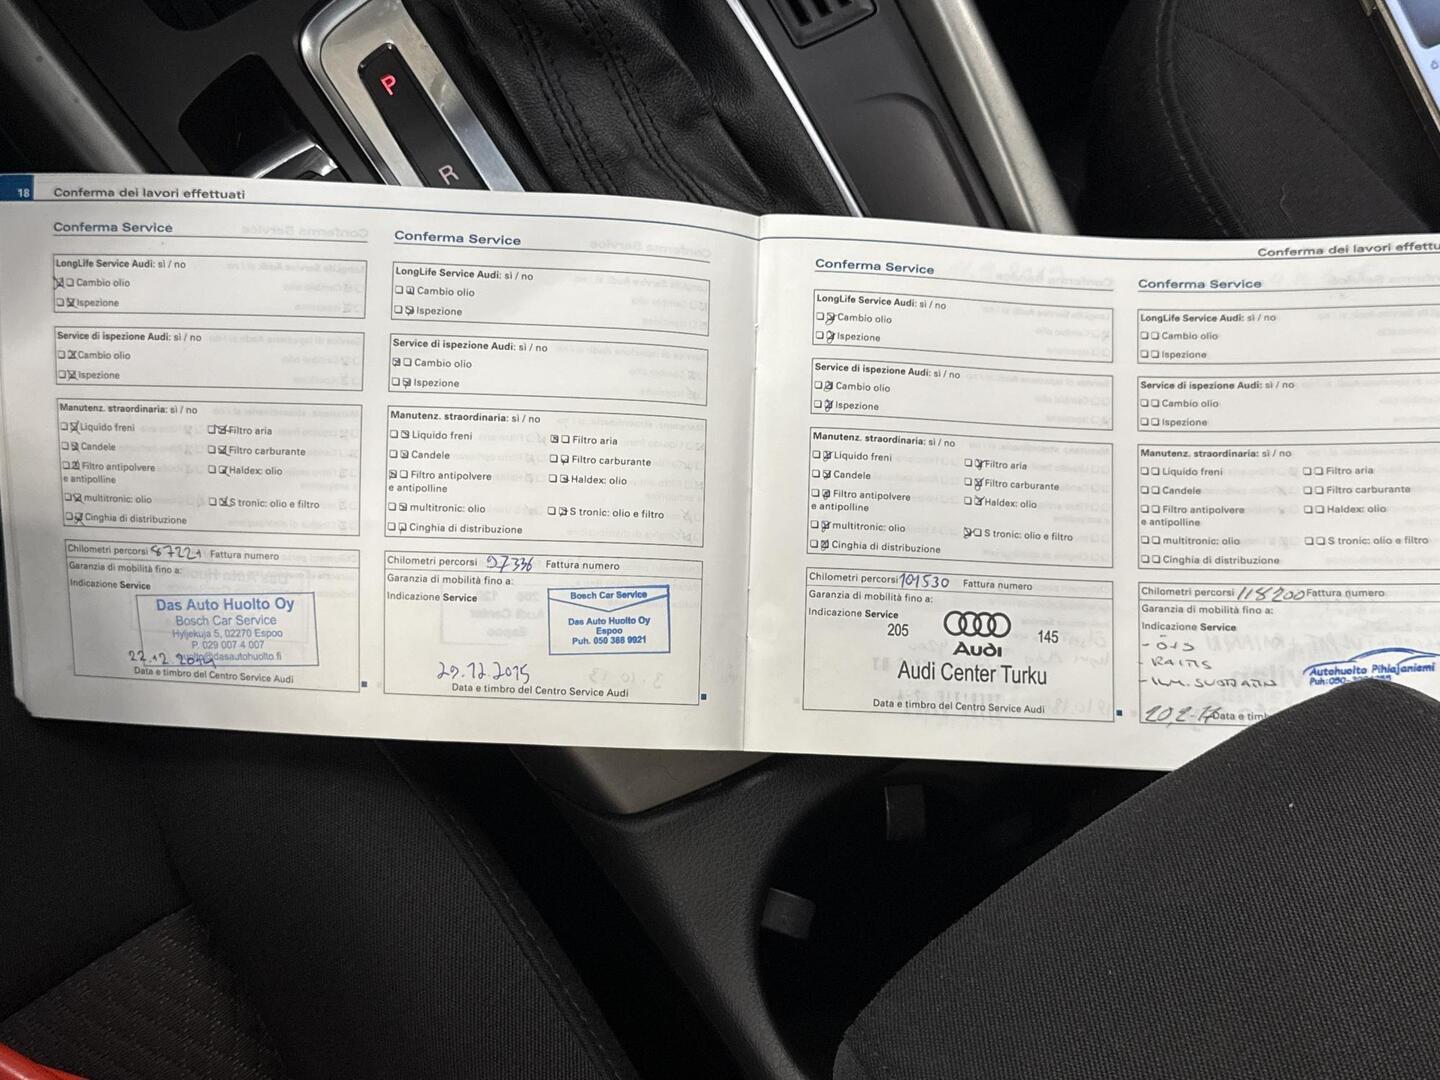 P
R
18 Conferma dei lavori effettuati
Conferma Service
LongLife Service Audi: sì / no
Cambio olio
Ispezione
Service di ispezione Audi: sì / no
Cambio olio
Ispezione
Manutenz. straordinaria: sì / no
Liquido freni Filtro aria
Candele Filtro carburante
Filtro antipolvere Haldex: olio
e antipolline
multitronic: olio S tronic: olio e filtro
Cinghia di distribuzione
Chilometri percorsi 87221 Fattura numero
Garanzia di mobilità fino a:
Indicazione Service
Das Auto Huolto Oy
Bosch Car Service
Hyljekuja 5, 02270 Espoo
P. 029 007 4 007
huolto@dasautohuolto.fi
22.12.2014
Data e timbro del Centro Service Audi
Conferma Service
LongLife Service Audi: sì / no
Cambio olio
Ispezione
Service di ispezione Audi: sì / no
Cambio olio
Ispezione
Manutenz. straordinaria: sì / no
Liquido freni Filtro aria
Candele Filtro carburante
Filtro antipolvere Haldex: olio
e antipolline
multitronic: olio S tronic: olio e filtro
Cinghia di distribuzione
Chilometri percorsi 97336 Fattura numero
Garanzia di mobilità fino a:
Indicazione Service
Bosch Car Service
Das Auto Huolto Oy
Espoo
Puh. 050 388 9921
29.12.2015
Data e timbro del Centro Service Audi
Conferma dei lavori effettu
Conferma Service
LongLife Service Audi: sì / no
Cambio olio
Ispezione
Service di ispezione Audi: sì / no
Cambio olio
Ispezione
Manutenz. straordinaria: sì / no
Liquido freni Filtro aria
Candele Filtro carburante
Filtro antipolvere Haldex: olio
e antipolline
multitronic: olio S tronic: olio e filtro
Cinghia di distribuzione
Chilometri percorsi 101530 Fattura numero
Garanzia di mobilità fino a:
Indicazione Service
205 145
Audi
Audi Center Turku
Data e timbro del Centro Service Audi
Conferma Service
LongLife Service Audi: sì / no
Cambio olio
Ispezione
Service di ispezione Audi: sì / no
Cambio olio
Ispezione
Manutenz. straordinaria: sì / no
Liquido freni Filtro aria
Candele Filtro carburante
Filtro antipolvere Haldex: olio
e antipolline
multitronic: olio S tronic: olio e filtro
Cinghia di distribuzione
Chilometri percorsi 118200 Fattura numero
Garanzia di mobilità fino a:
Indicazione Service
- ÖJS
- RAITIS
- ILM. SUODATIN
Autohuolto Pihlajaniemi
Puh: 050-
20.2-17 Data e timb